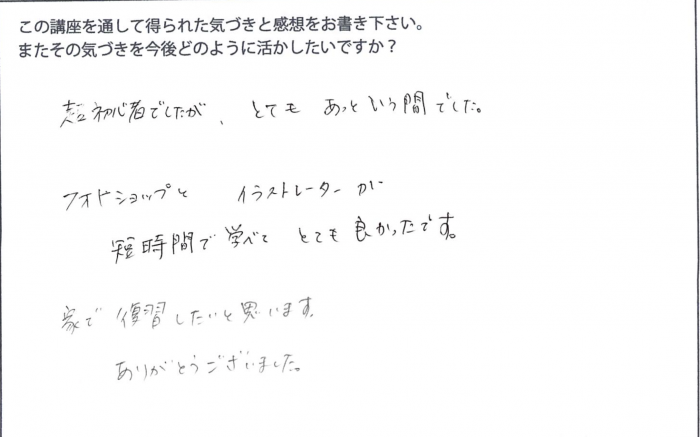 この講座を通して得られた気づきと感想をお書き下さい。
またその気づきを今後どのように活かしたいですか？
超初心者でしたが、とても あっという間でした。
フォトショップと イラストレーターが
短時間で学べて とても良かったです。
家で復習したいと思います。
ありがとうございました。